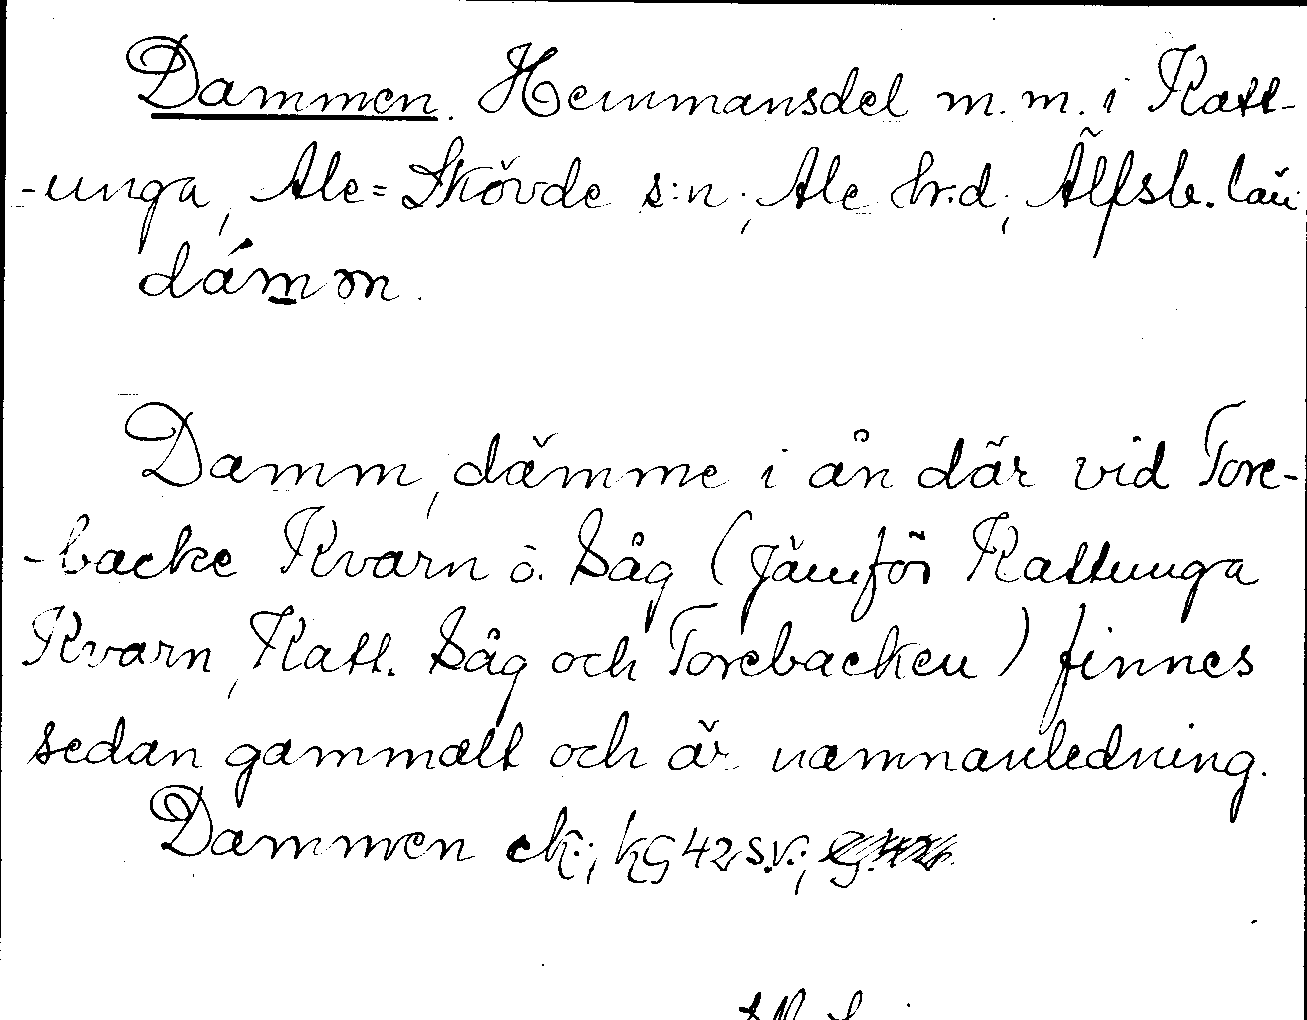 Dammen. Hemmansdel m. m. i Katt-
-unga, Ale=Skövde s:n, Ale hr.d, Älfsb. län.
dámm̥.
Damm, dämme i ån där vid Tore-
-backe Kvarn o. Såg (jämför Kattunga
Kvarn, Katt. Såg och Torebacken) finnes
sedan gammalt och är namnanledning.
Dammen ek.; kG42s.v.;